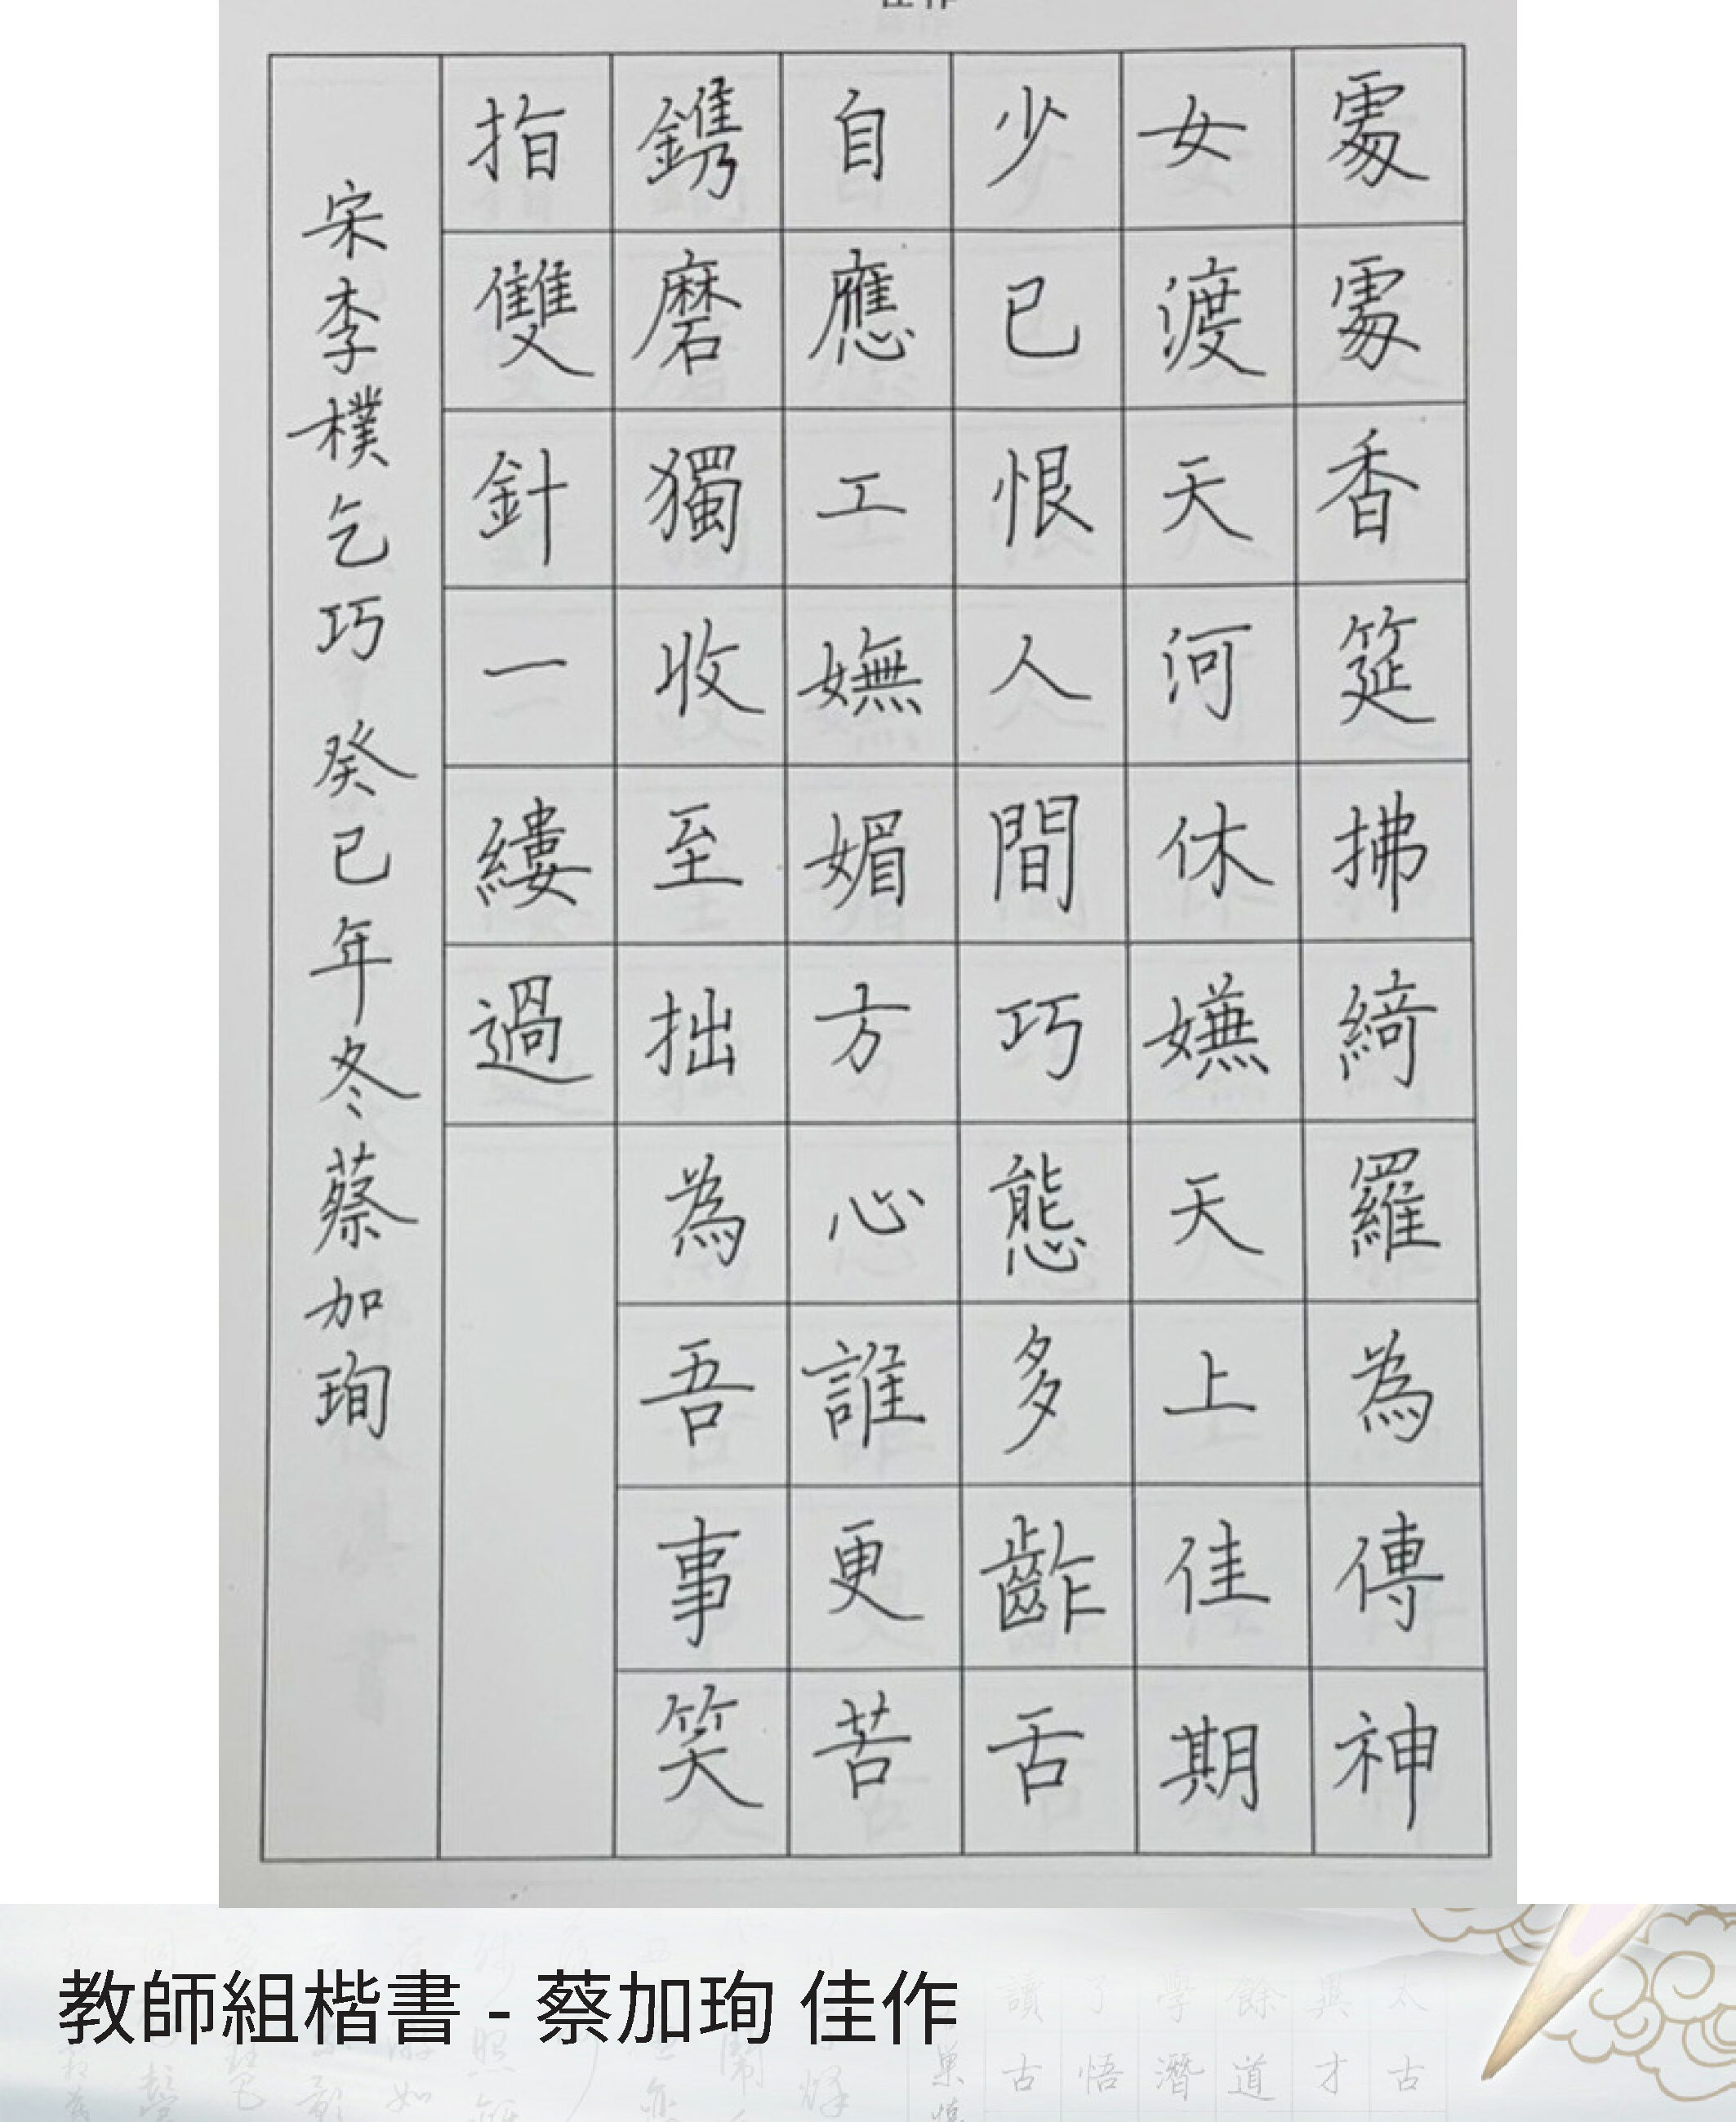 處處香筵拂綺羅為傳神
女渡天河休嫌天上佳期
少已恨人間巧態多齚舌
自應工嫵媚方心誰更苦
鐫磨獨收至拙為吾事笑
指雙針一縷過
宋李樸乞巧 癸已年冬蔡加珣
教師組楷書 - 蔡加珣 佳作